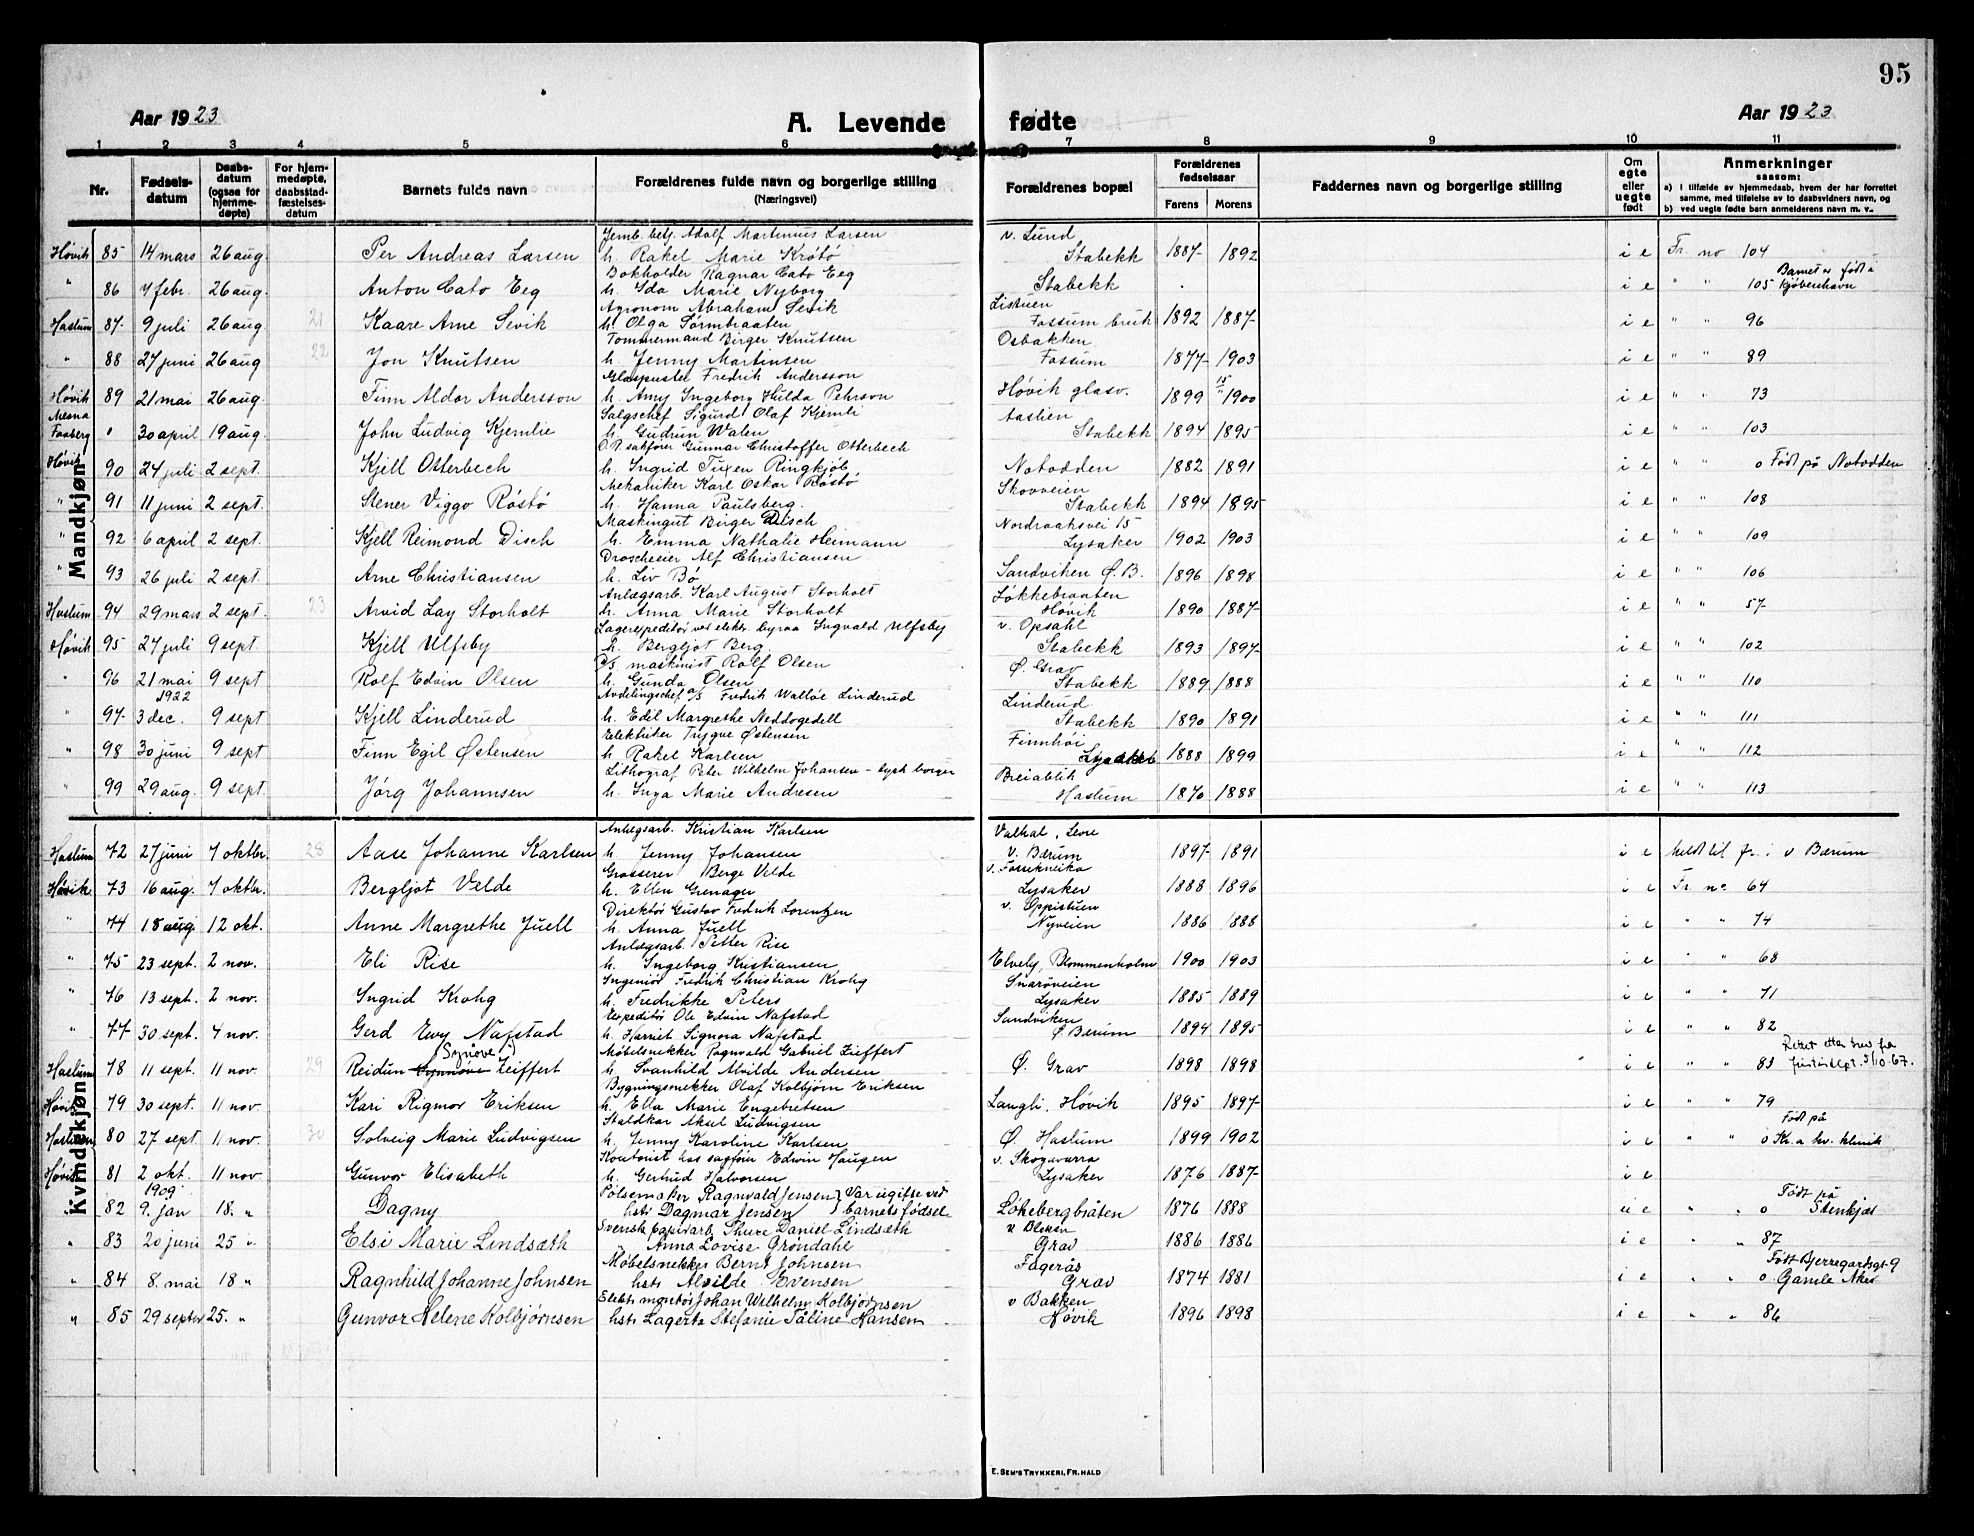 95
Aar 1923 A. Levende fødte Aar 1923
1 2 3 4 5 6 7 8 9 10 11
Nr.
Fødsels-
datum
Daabs-
datum
(ogsaa for
hjemme-
døpte)
For hjem-
medøpte,
daabsstad-
fæstelses-
datum
Barnets fulde navn
Forældrenes fulde navn og borgerlige stilling
(Næringsvei)
Forældrenes bopæl
Forældrenes
fødselsaar
Farens Morens
Faddernes navn og borgerlige stilling
Om
egte
eller
uegte
født
Anmerkninger
saasom:
a) I tilfælde av hjemmedaab, hvem der har forrettet
samme, med tilføielse av to daabsvidners navn, og
b) ved uegte fødte barn anmelderens navn m. v.
Mandkjøn
Jernb. betj. Adolf Martinus Larsen v. Lund
Høvik 85 14 mars 26 aug. Per Andreas Larsen h. Rakel Marie Krötö Stabekk 1887 1892 i e Fr. no 104
Bokholder Ragnar Cato Eeg Barnet er født i
" 86 7 febr. 26 aug. Anton Cato Eeg h. Ida Marie Nyborg Stabekk i e " " 105 Kjøbenhavn
Agronom Abraham Sevik Listuen
Haslum 87 9 juli 26 aug 21 Kaare Arne Sevik h. Olga Sörmbraaten Fossum bruk 1892 1887 i e " " 96
Tømmermand Birger Knutsen Osbakken
" 88 27 juni 26 aug 22 Jon Knutsen h. Jenny Martinsen Fossum 1877 1903 i e " " 89
Glaspuster Fredrik Andersson
Høvik 89 21 mai 26 aug. Finn Aldor Andersson h. Amy Ingeborg Hilda Pehrson Høvik glasv. 1899 1900 i e " " 73
Mesna Salgschef Sigurd Olaf Kjemli Aaslien
Faaberg 0 30 april 19 aug. John Ludvig Kjemlie h. Gudrun Walen Stabekk 1894 1895 i e " " 103
O.r. sakfører Gunnar Christoffer Otterbech
Høvik 90 24 juli 2 sept. Kjell Otterbech h. Ingrid Tuxen Ringkjöb Notodden 1882 1891 i e " " 0 Født på Notodden
Mekaniker Karl Oskar Röstö Skovveien
" 91 11 juni 2 sept. Stener Viggo Röstö h. Hanna Paulsberg. Stabekk 1894 1895 i e " " 108
Maskingut Birger Disch Nordraaksvei 15
" 92 6 april 2 sept. Kjell Reimond Disch h. Emma Nathalie Heimann Lysaker 1902 1903 i e " " 109
Droscheeier Alf Christiansen
" 93 26 juli 2 sept. Arne Christiansen h. Liv Bø Sandviken Ø. B. 1896 1898 i e " " 106
Anlægsarb. Karl August Storholt Løkkebraaten
Haslum 94 29 mars 2 sept. 23 Arvid Lay Storholt h. Anna Marie Storholt Høvik 1890 1887 i e " " 57
Lagerexpeditör ved elektr. byraa Ingvald Ulfsby v. Opsahl
Høvik 95 27 juli 9 sept. Kjell Ulfsby h. Bergljot Berg. Stabekk 1893 1897 i e " " 102
D/S maskinist Rolf Olsen Ø. Grav
" 96 21 mai 9 sept Rolf Edvin Olsen h. Gunda Olsen Stabekk 1889 1888 i e " " 110
1922 Avdelingschef a/s Fredrik Walløe Linderud Linderud
" 97 3 dec. 9 sept Kjell Linderud h. Edil Margrethe Neddogedell Stabekk 1890 1891 i e " " 111
Elektriker Trygve Østensen Finnhöi
" 98 30 juni 9 sept Finn Egil Østensen h. Rakel Karlsen Lysaker 1888 1899 i e " " 112
Lithograf Peter Wilhelm Johansen - tysk borger Breiablik
" 99 29 aug. 9 sept. Jörg Johannsen h. Inga Marie Andresen Haslum 1870 1888 i e " " 113
Kvindekjøn
Anlægsarb. Kristian Karlsen Valhal, Levre
Haslum 72 27 juni 7 oktbr. 28 Aase Johanne Karlsen h. Jenny Johansen V. Bærum 1897 1891 i e Meldt til fr. i v Bærum
Grosserer Berge Velde
Høvik 73 16 aug. 7 oktbr. Bergljot Velde h. Ellen Grenager Lysaker 1888 1896 i e Fr. no. 64
Direktör Gustav Fredrik Lorentzen v. Oppistuen
" 74 18 aug 12 okt. Anne Margrethe Juell h. Anna Juell Nyveien 1886 1888 i e " " 74
Anlægsarb. Petter Rise
" 75 23 sept. 2 nov. Eli Rise h. Ingeborg Kristiansen Elvely, Blommenholm 1900 1903 i e " " 68
Ingeniör Fredrik Christian Krohg Snaröveien
" 76 13 sept. 2 nov. Ingrid Krohg h. Fredrikke Peters Lysaker 1885 1889 i e " " 71
Expeditör Ole Edvin Nafstad Sandviken
" 77 30 sept. 4 nov. Gerd Ewy Nafstad h. Harriet Signora Nafstad Ø Bærum 1894 1895 i e " " 82
Synøve Møbelsnekker Ragnvald Gabriel Zieffert Rettet etter brev fra
Haslum 78 11 sept. 11 nov. 29 Reidun Synnøve Zeiffert h. Svanhild Alvilde Andersen Ø. Grav 1898 1898 i e " " 83 Justisdept. 5/10.67.
Bygningsnekker Olaf Kolbjörn Eriksen
Høvik 79 30 sept. 11 nov Kari Rigmor Eriksen h. Ella Marie Engebretsen Langli, Høvik 1895 1897 i e " " 79
Staldkar Aksel Ludvigsen Født på
Haslum 80 27 sept 11 nov. 30 Solveig Marie Ludvigsen h. Jenny Karoline Karlsen Ø. Haslum 1899 1902 i e " " 0 Kr.a kv. klinik
Kontorist hos sagfører Edwin Haugen v. Skogvarra
Høvik 81 2 okt. 11 nov Gunvor Elisabeth h. Gertrud Halvorsen Lysaker 1876 1887 i e
1909 Pölsemaker Ragnvald Jensen } Var ugifte ved Født på
82 9. jan 18. " Dagny hst. Dagmar Jensen } barnets fødsel Løkebergbråten 1876 1888 u e " " 0 Stenkjær
Svensk papirarb. Thure Daniel Lindsæth v Bleken
" 83 20 juni 25 " Elsi Marie Lindsæth " Anna Lovise Gröndahl Grav 1886 1886 i e " " 87
Møbelsnekker Bernt Johnsen Fagerås Født Bjerregaardsgt 9
" 84 8. mai 18 " Ragnhild Johanne Johnsen hst. Alvilde Evensen Grav 1874 1881 i e " " 0. Gamle Aker
Elekt. montör Johan Wilhelm Kolbjörnsen v Bakken
" 85 29 septbr 25. " Gunvor Helene Kolbjørnsen hst. Lagerta Stefanie Påline Hansen Høvik 1896 1898 i e " " 86
E. SEM'S TRYKKERI, FR. HALD